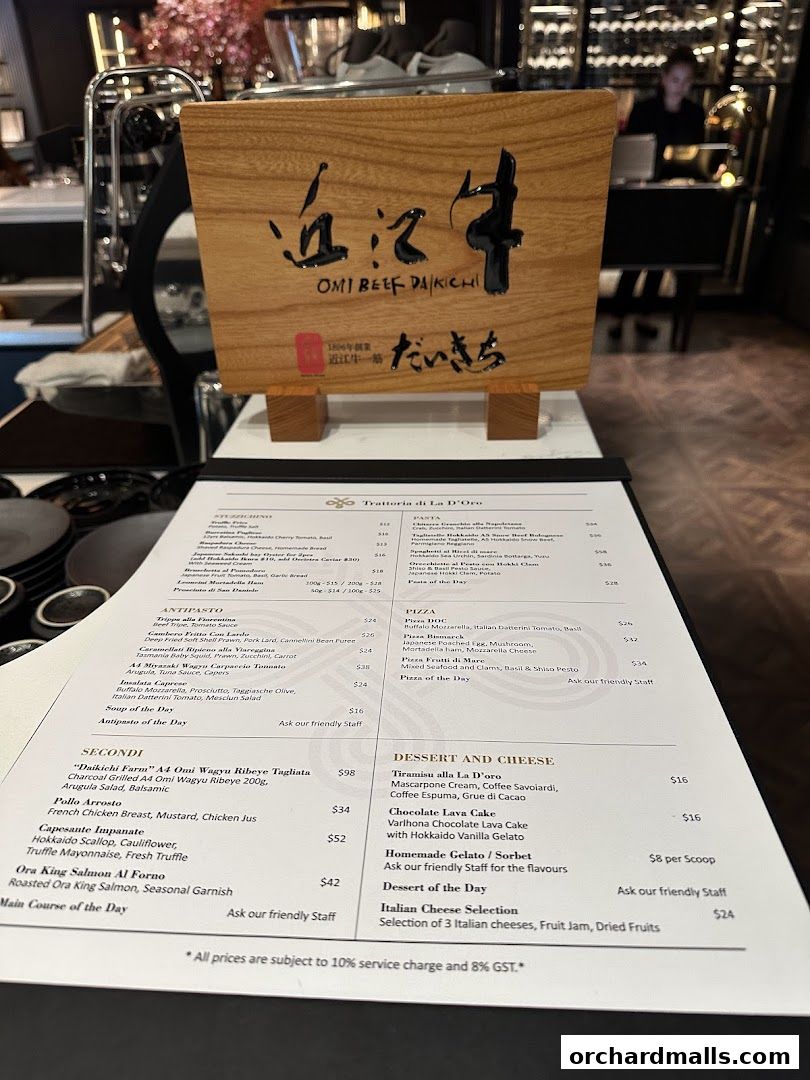 近江牛
OMI BEEF DAIKICHI
1896年創業
近江牛一筋
だいきち
Trattoria di La D'Oro
STUZZICHINO
Truffle Fries $12
Potato, Truffle Salt
Burratina Pugliese $18
125g Balsamic, Hokkaido Cherry Tomato, Basil
Raspadura Cheese $13
Shaved Raspadura Cheese, Homemade Bread
$16
With Seaweed Creem
Bruschetta al Pomodoro $18
Japanese Fruit Tomato, Basil, Garlic Bread
Leoncini Mortadella Ham 100g - $15 / 200g - $28
Prosciuto di San Daniele 50g - $14 / 100g - $25
ANTIPASTO
Trippa alla Fiorentina $24
Beef Tripe, Tomato Sauce
Gambero Fritto Con Lardo $26
Deep Fried Soft Shell Prawn, Pork Lard, Cannellini Bean Puree
Caramellati Ripieno alla Viareggina $24
Tasmania Baby Squid, Prawn, Zucchini, Carrot
A4 Miyazaki Wagyu Carpaccio Tonnato $38
Arugula, Tuna Sauce, Capers
Insalata Caprese $24
Buffalo Mozzarella, Prosciutto, Taggiasche Olive,
Italian Datterini Tomato, Mesclun Salad
Soup of the Day $16
Antipasto of the Day Ask our friendly Staff
SECONDI
"Daikichi Farm" A4 Omi Wagyu Ribeye Tagliata $98
Charcoal Grilled A4 Omi Wagyu Ribeye 200g,
Arugula Salad, Balsamic
Pollo Arrosto $34
French Chicken Breast, Mustard, Chicken Jus
Capesante Impanate $52
Hokkaido Scallop, Cauliflower,
Truffle Mayonnaise, Fresh Truffle
Ora King Salmon Al Forno $42
Roasted Ora King Salmon, Seasonal Garnish
Main Course of the Day Ask our friendly Staff
PASTA
Chitarra Granchio alla Napoletana $34
Crab, Zucchini, Italian Datterini Tomato
Tagliatelle Hokkaido A5 Snow Beef Bolognese $36
Homemade Tagliatelle, A5 Hokkaido Snow Beef,
Parmigiano Reggiano
Spaghetti ai Ricci di mare $58
Hokkaido Sea Urchin, Sardinia Bottarga, Yuzu
Orecchiette al Pesto con Hokki Clam $36
Shiso & Basil Pesto Sauce,
Japanese Hokki Clam, Potato
Pasta of the Day $28
PIZZA
Pizza DOC $26
Buffalo Mozzarella, Italian Datterini Tomato, Basil
Pizza Bismarck $32
Japanese Poached Egg, Mushroom,
Mortadella ham, Mozzarella Cheese
Pizza Frutti di Mare $34
Mixed Seafood and Clams, Basil & Shiso Pesto
Pizza of the Day Ask our friendly Staff
DESSERT AND CHEESE
Tiramisu alla La D'oro $16
Mascarpone Cream, Coffee Savoiardi,
Coffee Espuma, Grue di Cacao
Chocolate Lava Cake $16
Varlhona Chocolate Lava Cake
with Hokkaido Vanilla Gelato
Homemade Gelato / Sorbet $8 per Scoop
Ask our friendly Staff for the flavours
Dessert of the Day Ask our friendly Staff
Italian Cheese Selection $24
Selection of 3 Italian cheeses, Fruit Jam, Dried Fruits
* All prices are subject to 10% service charge and 8% GST.*
orchardmalls.com